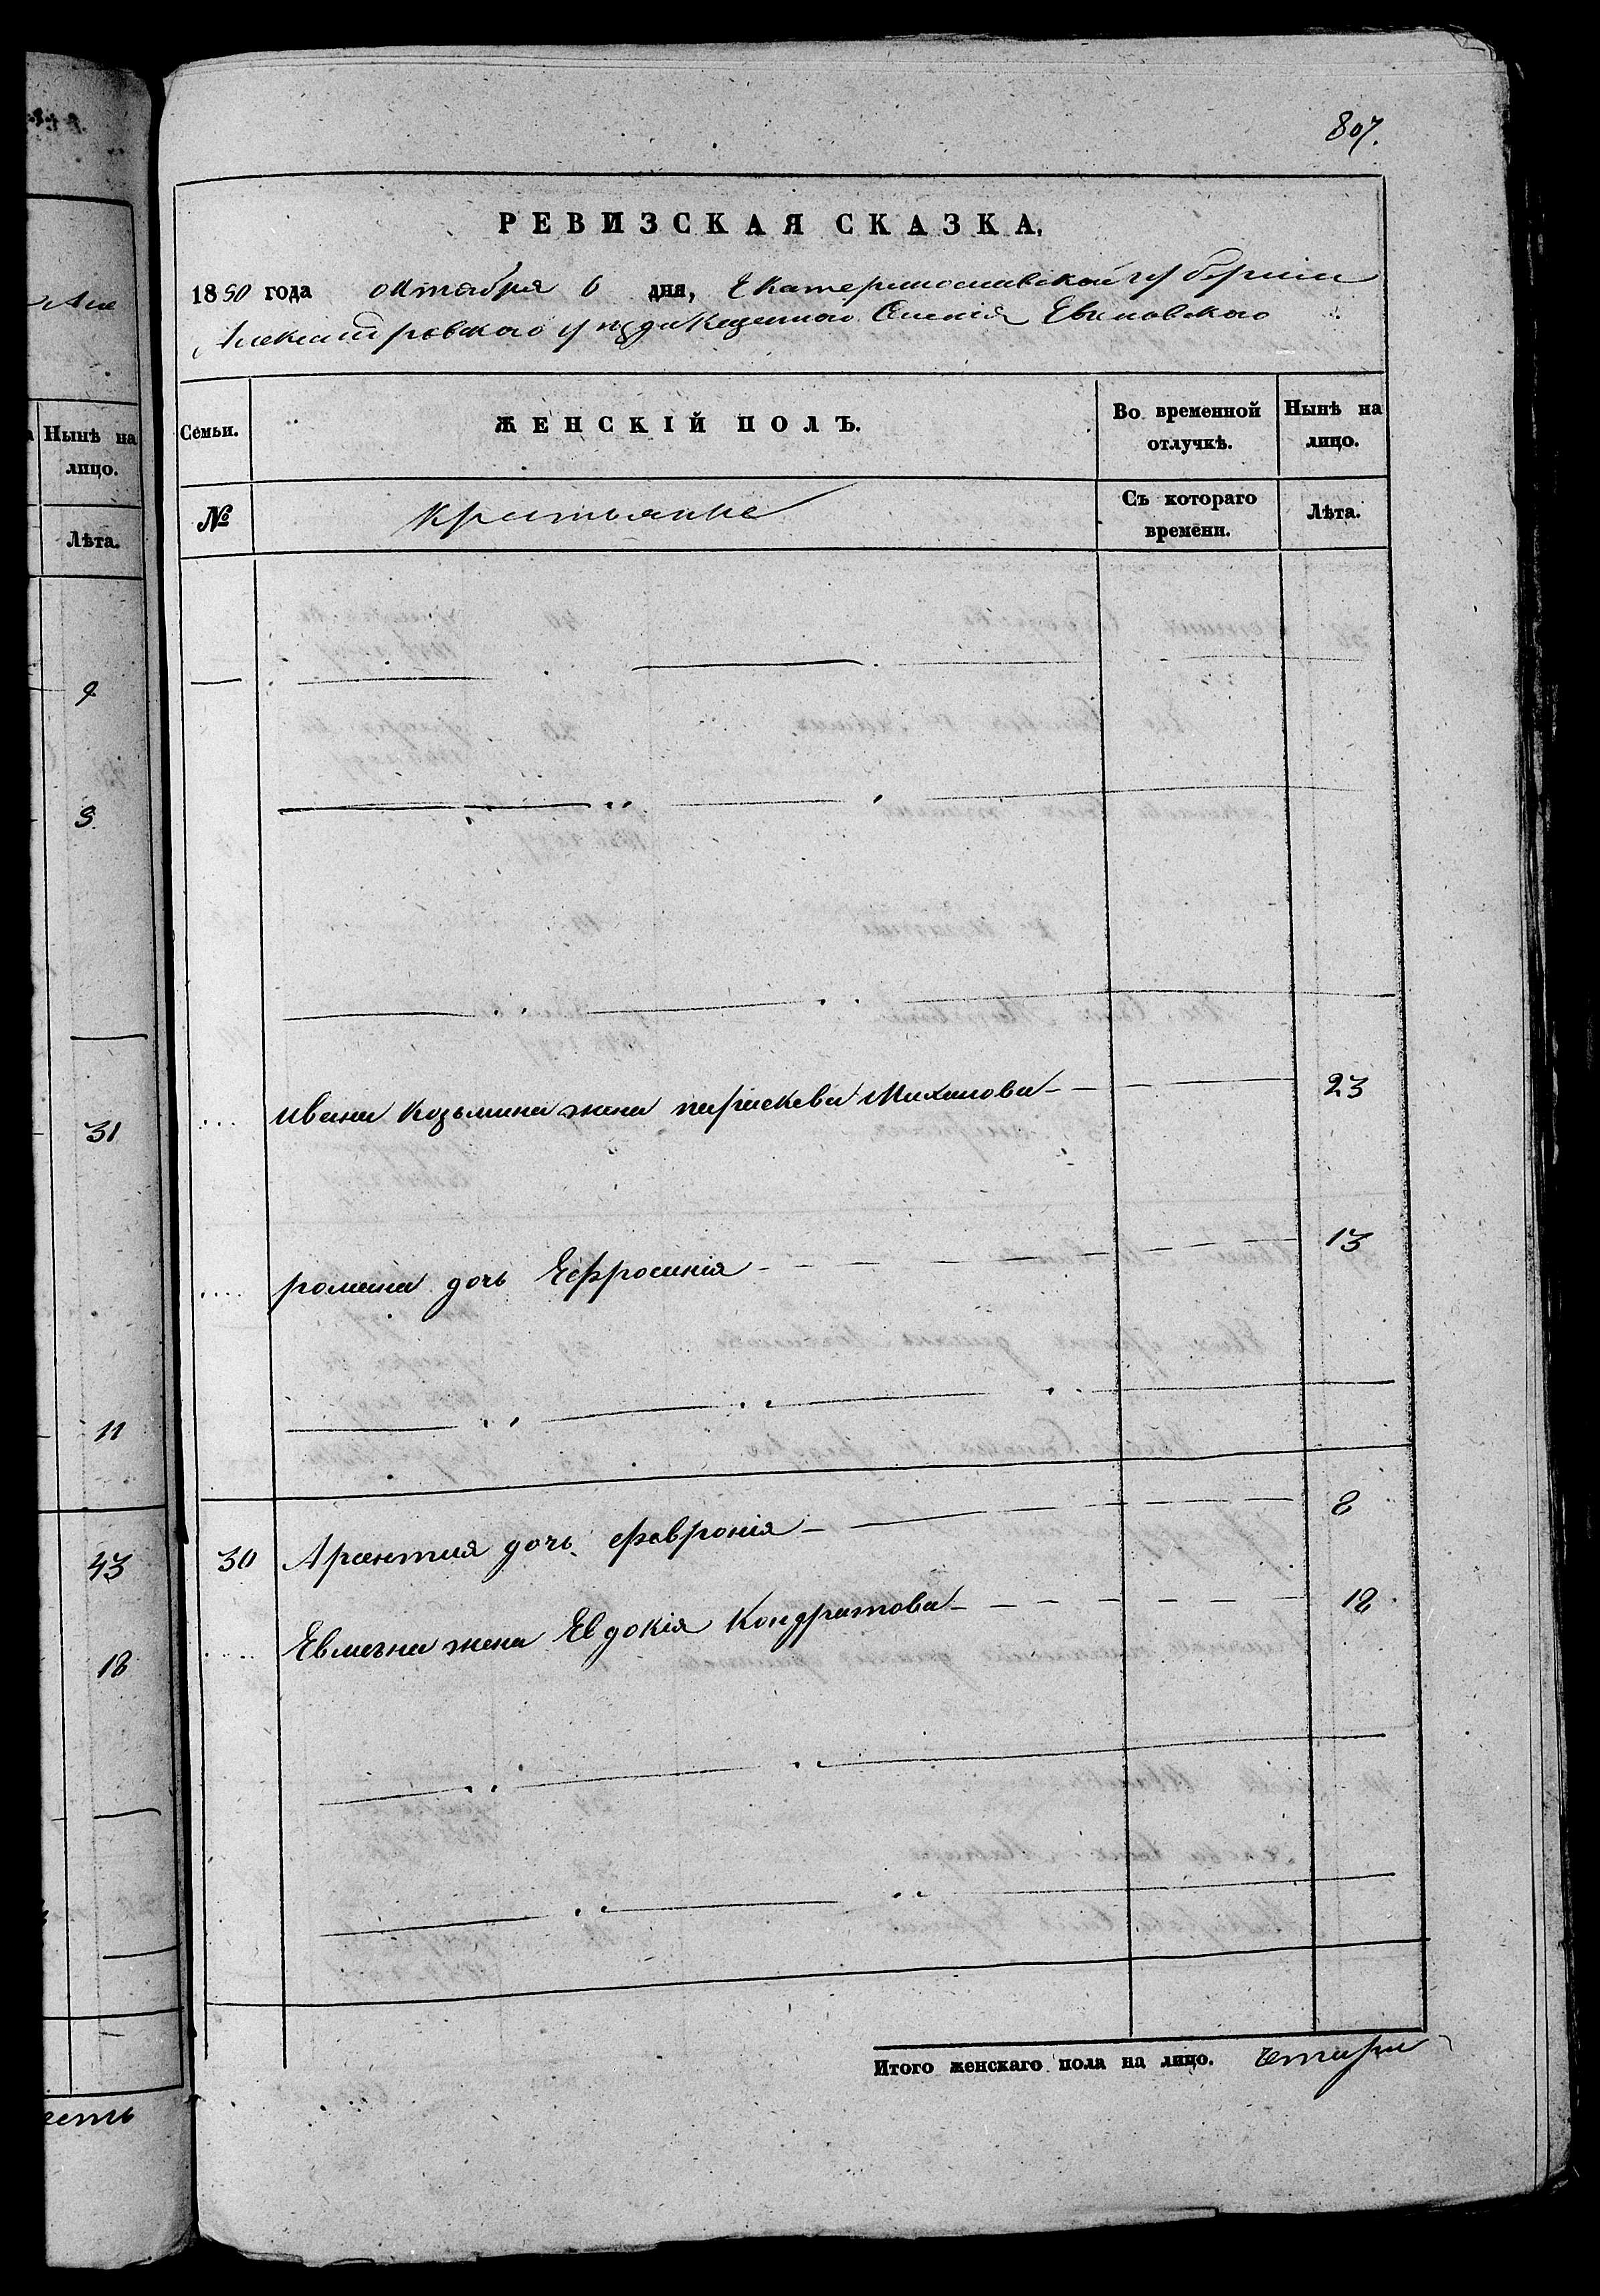 807.
РЕВИЗСКАЯ СКАЗКА.
1850 года октября 6 дня, Екатеринославской губернии
Александровского уезда Казенного Селения
Семьи.
ЖЕНСКІЙ ПОЛЪ.
Во временной отлучкѣ.
Нынѣ на лицо.
№
крестьянка
Съ котораго времени.
Лѣта.
ивана Козьмина жена параскева Михаилова 23
романа дочь Ефросинія 13
30 дочь феврония 8
жена Евдокія Кондратова 18
Итого женскаго пола на лицо. четыри
Нынѣ на
лицо.
Лѣта.
9
31
11
43
18